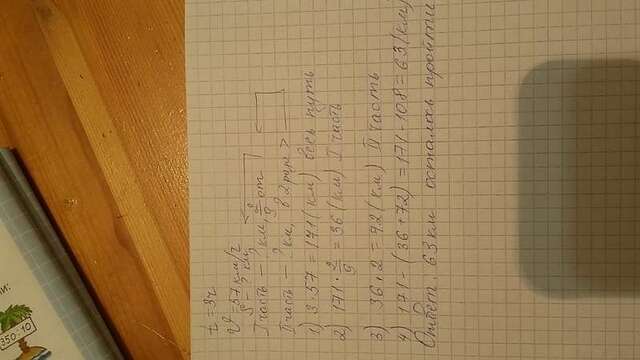 350:10
t = 3ч
V = 57 км/ч
S – ? км
I часть – ? км, 2/9 от
II часть – ? км, в 2 раза >
1) 3·57 = 171 (км) весь путь
2) 171 · 2/9 = 36 (км) I часть
3) 36·2 = 72 (км) II часть
4) 171 – (36 + 72) = 171 - 108 = 63 (км)
Ответ: 63 км осталось пройти